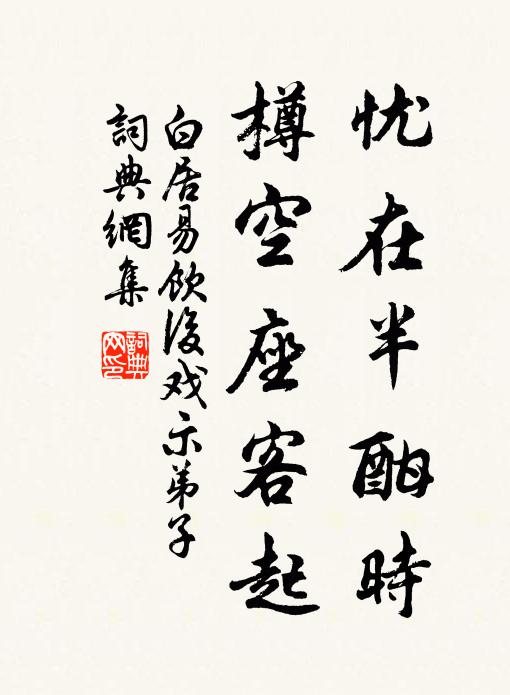 忧在半酣時
樽空座客起
白居易飲後戏示弟子
詞典網集
詞典網印